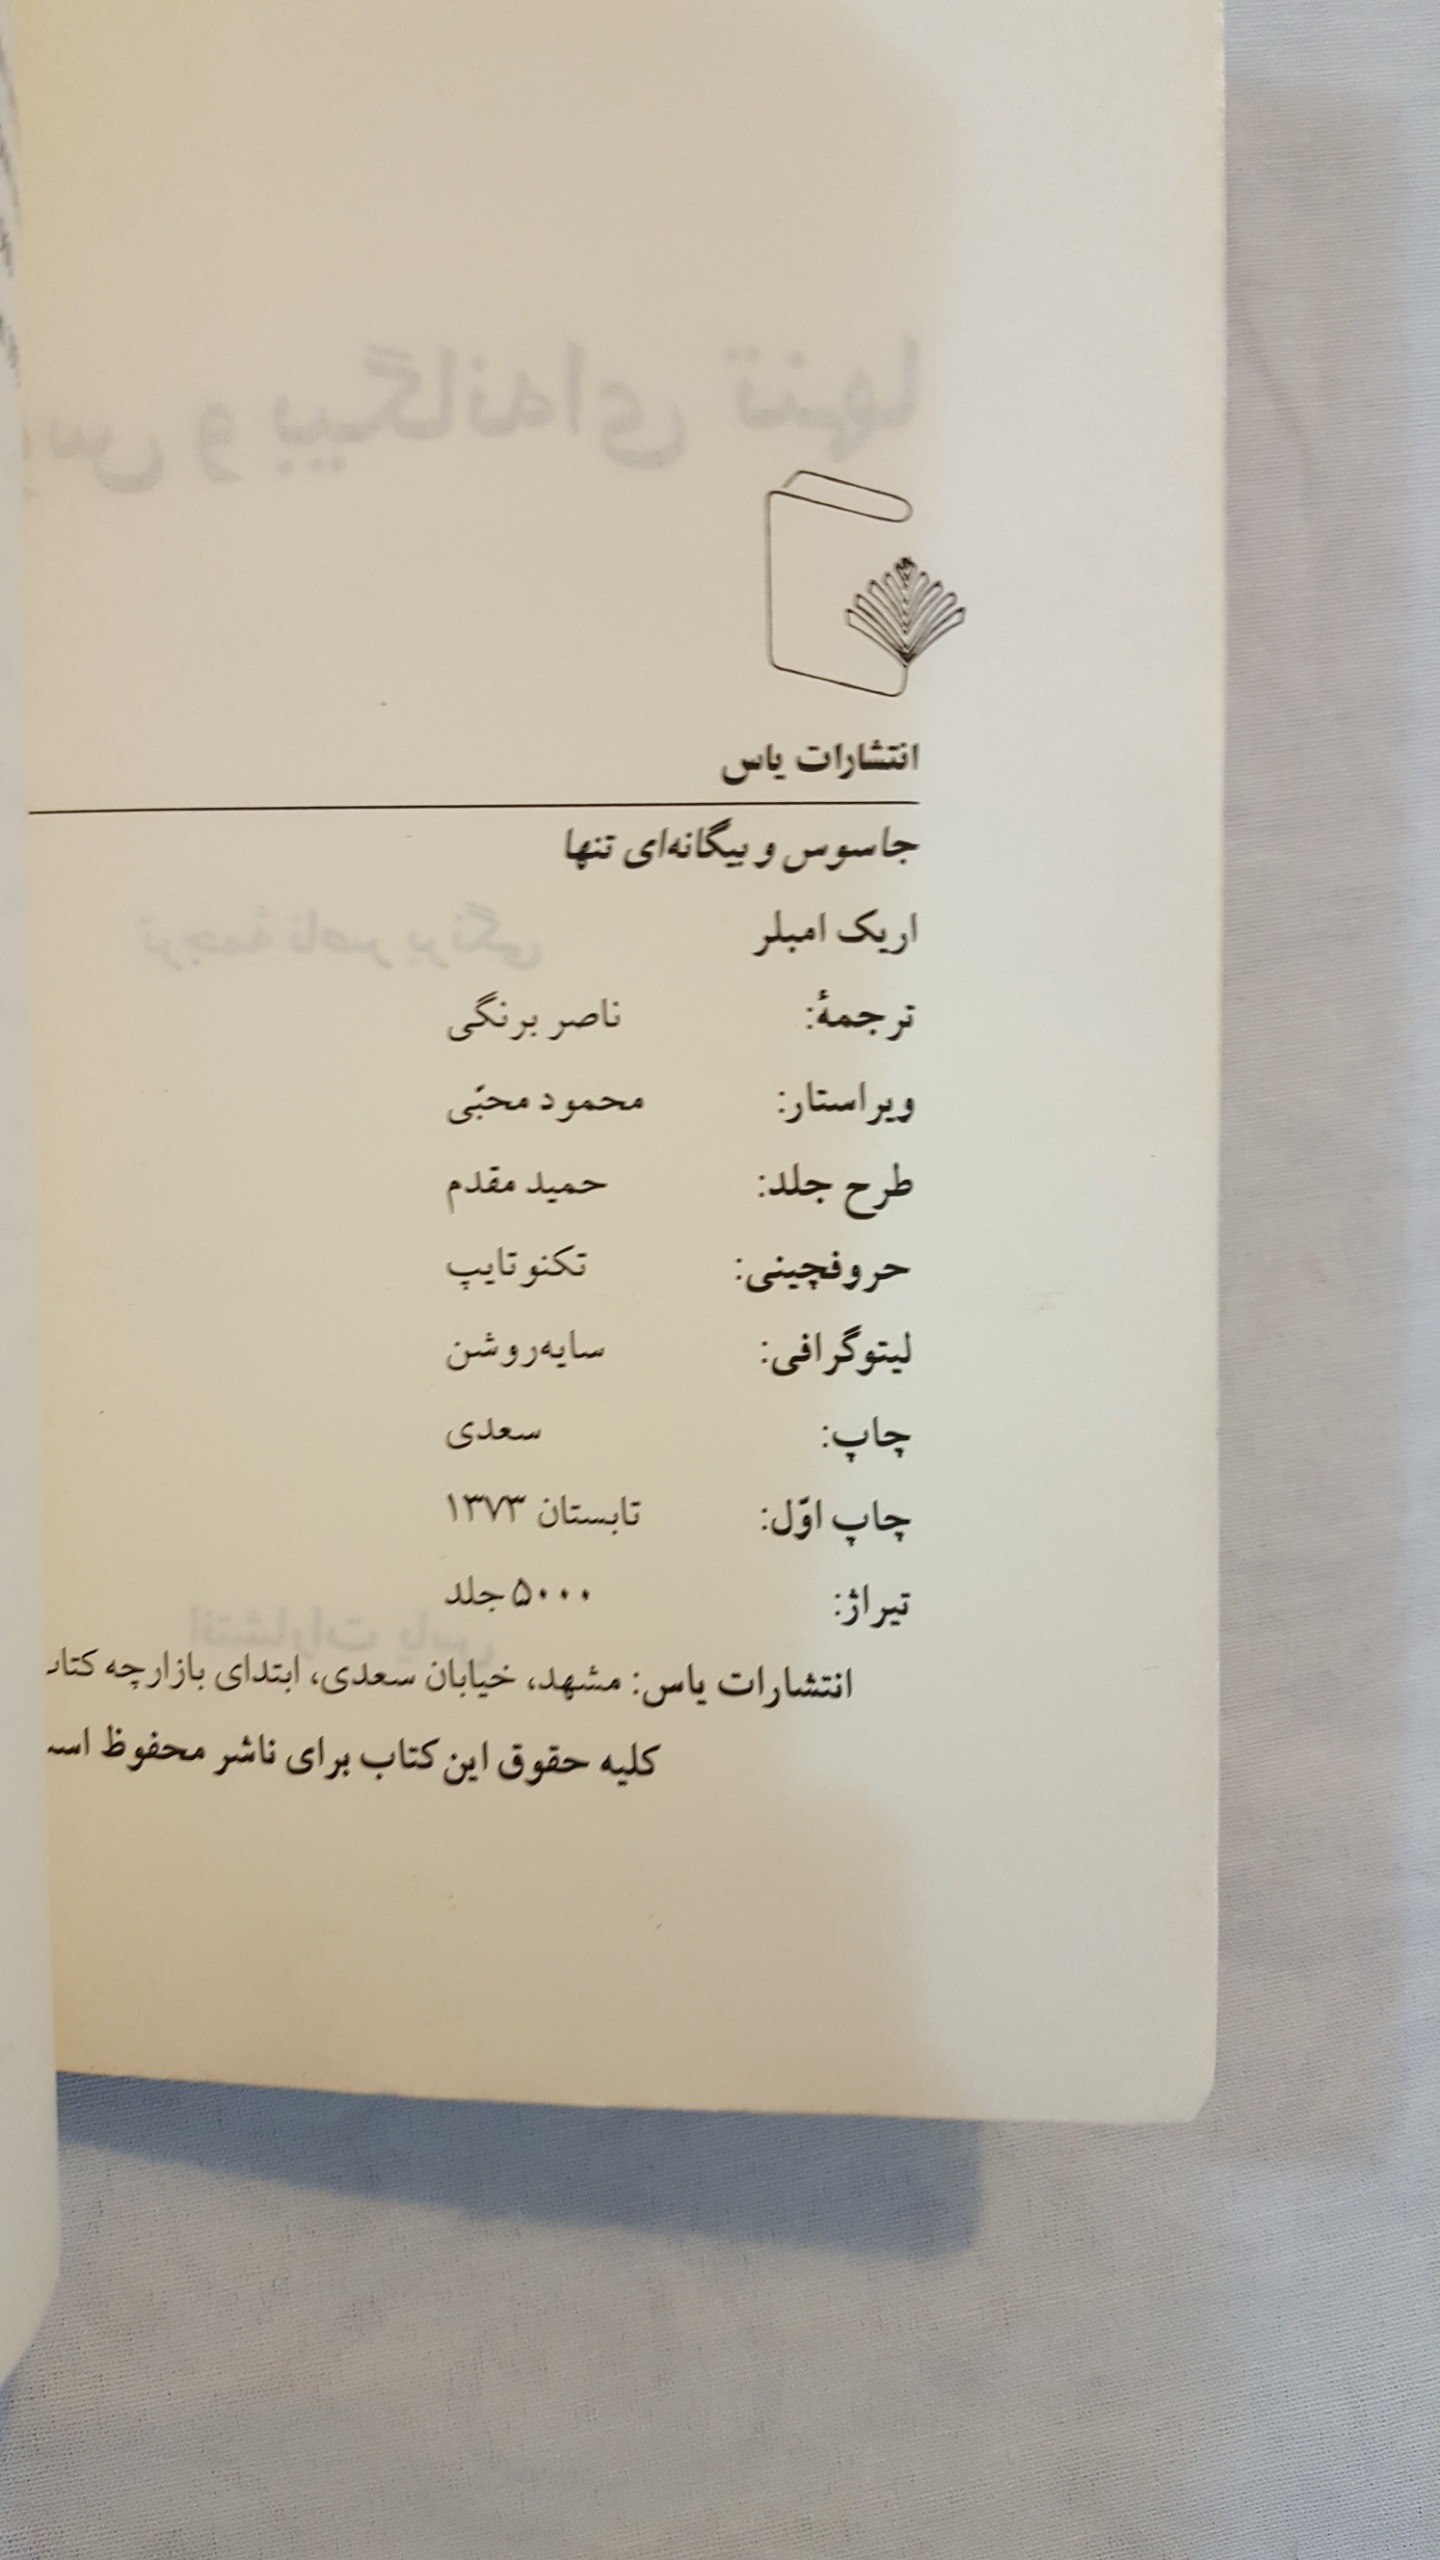 انتشارات یاس
جاسوس و بیگانه‌ای تنها
اریک امبلر
ترجمهٔ: ناصر برنگی
ویراستار: محمود محبّی
طرح جلد: حمید مقدم
حروفچینی: تکنوتایپ
لیتوگرافی: سایه‌روشن
چاپ: سعدی
چاپ اوّل: تابستان ۱۳۷۳
تیراژ: ۵۰۰۰ جلد
انتشارات یاس: مشهد، خیابان سعدی، ابتدای بازارچه
کلیه حقوق این کتاب برای ناشر محفوظ